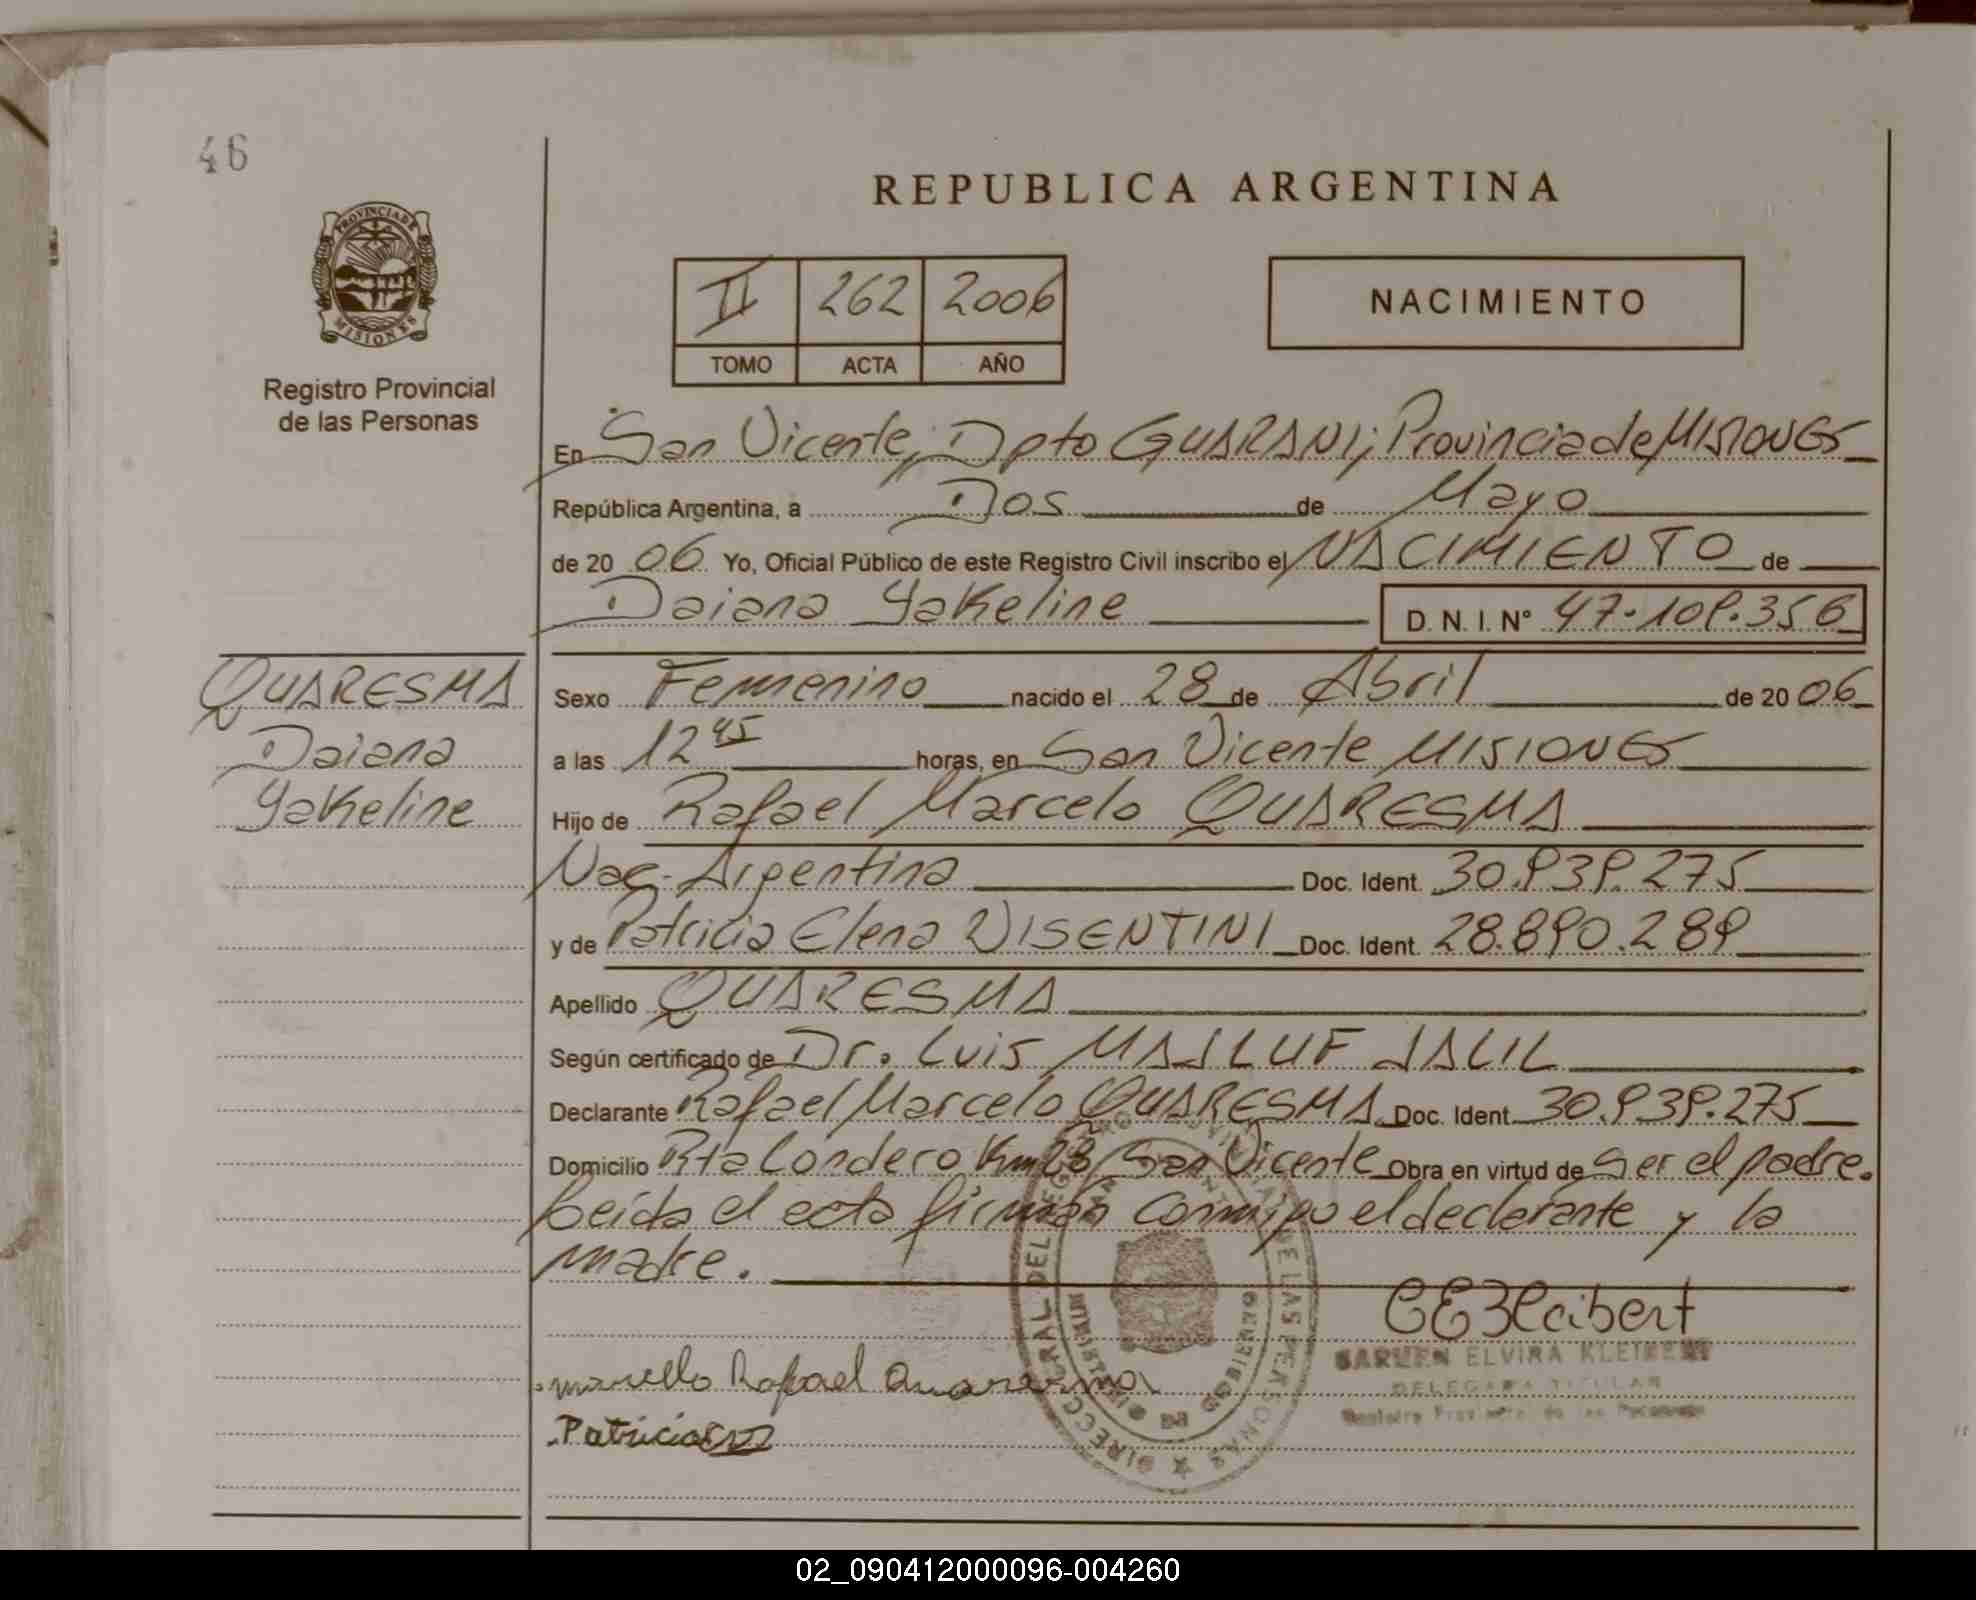 46
PROVINCIA DE
MISIONES
Registro Provincial
de las Personas
QUARESMA
Daiana
Yakeline
REPUBLICA ARGENTINA
II 262 2006
TOMO ACTA AÑO
NACIMIENTO
En San Vicente, Dpto GUARANI; Provincia de MISIONES
República Argentina, a Dos de Mayo
de 20 06 Yo, Oficial Público de este Registro Civil inscribo el NACIMIENTO de
Daiana Yakeline D. N. I. N° 47.109.356
Sexo Femenino nacido el 28 de Abril de 20 06
a las 12 45 horas, en San Vicente MISIONES
Hijo de Rafael Marcelo QUARESMA
Nac. Argentina Doc. Ident. 30.939.275
y de Patricia Elena VISENTINI Doc. Ident. 28.890.289
Apellido QUARESMA
Según certificado de Dr. Luis MASLUF JALIL
Declarante Rafael Marcelo QUARESMA Doc. Ident. 30.939.275
Domicilio Rta Londero Km 28 San Vicente Obra en virtud de ser el padre.
Leída el acta firman conmigo el declarante y la
madre.
CARMEN ELVIRA KLEIBERT
DELEGADA TITULAR
Registro Provincial de las Personas
marcello Rafael Quaresma
Patricia
DIRECCION GENERAL DEL REGISTRO PROVINCIAL DE LAS PERSONAS
SAN VICENTE
MINISTERIO DE GOBIERNO
02_090412000096-004260